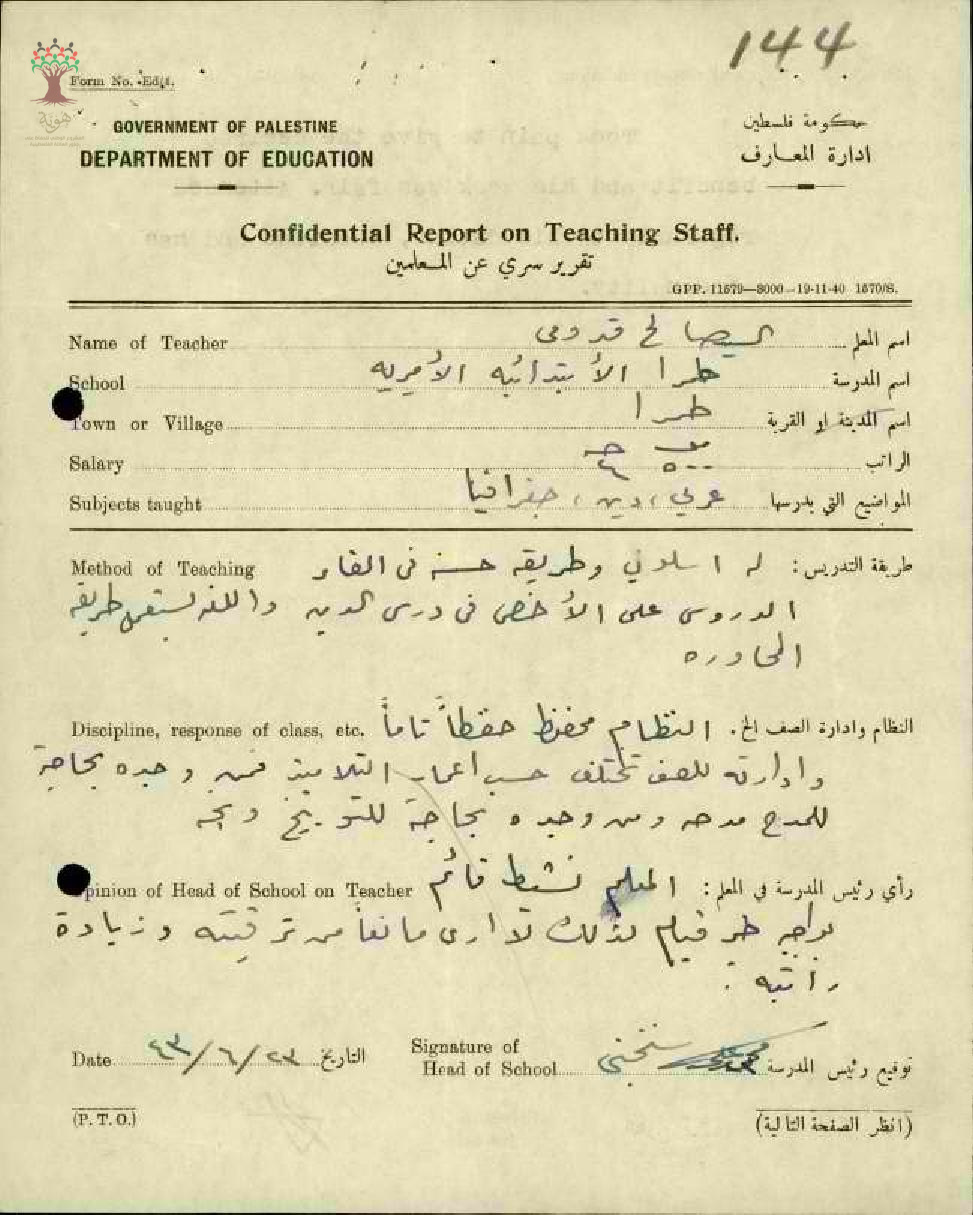 144
هوية
Form No. Ed/
GOVERNMENT OF PALESTINE
DEPARTMENT OF EDUCATION
حكومة فلسطين
ادارة المعارف
Confidential Report on Teaching Staff.
تقرير سري عن المعلمين
GPP. 11679—8000—19-11-40 1670/S.
Name of Teacher صالح قدومي اسم المعلم
School طيرا الأبتدائيه الأميريه اسم المدرسة
Town or Village طيرا اسم المدينة او القرية
Salary الراتب
Subjects taught عربي، دين، جغرافيا المواضيع التي يدرسها
Method of Teaching طريقة التدريس: له اسلوب وطريقه حسنه في القاء
الدروس على الأخص في درس الدين واللغه يستعمل طريقه
المحاوره
Discipline, response of class, etc. النظام وادارة الصف الخ. النظام محفوظ حفظاً تاماً
وادارته للصف تختلف حسب اعمار التلاميذ فمن وجده بحاجة
للمدح مدحه ومن وجده بحاجة للتوبيخ وبخه
Opinion of Head of School on Teacher رأي رئيس المدرسة في المعلم: المعلم نشيط قائم
بواجبه خير قيام لذلك لا ارى مانعاً من ترقيته وزيادة
راتبه.
Date ٢٣/٦/٤٣ التاريخ
Signature of
Head of School توقيع رئيس المدرسة
(P. T. O.) (انظر الصفحة التالية)